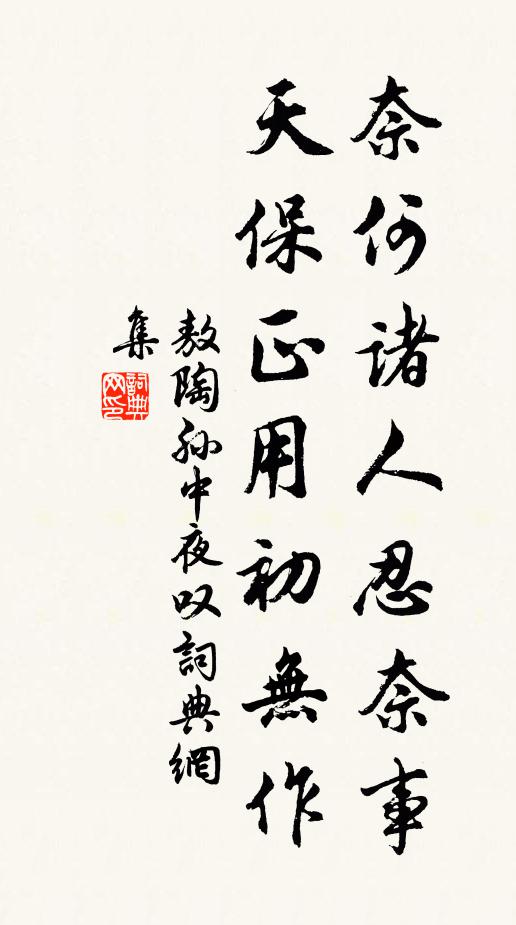 奈何诸人忍奈事
天保正用初無作
敖陶孙中夜叹詞典網
集
詞典网印